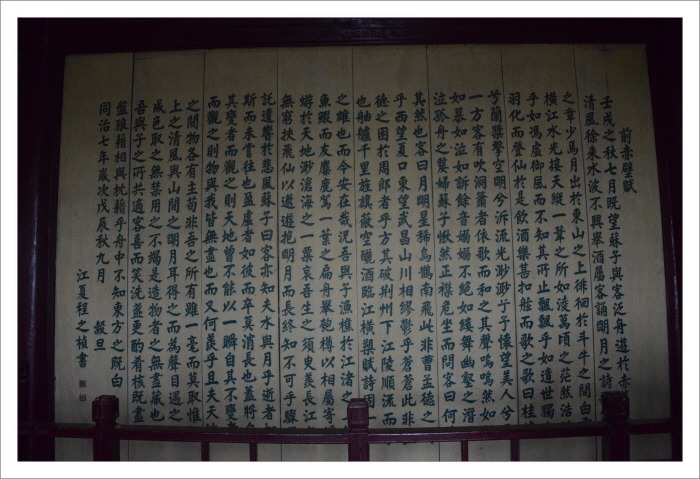 前赤壁賦
壬戌之秋七月既望蘇子與客泛舟遊於赤
清風徐來水波不興舉酒屬客誦明月之詩
之章少焉月出於東山之上徘徊於斗牛之間白
橫江水光接天縱一葦之所如淩萬頃之茫然浩
乎如馮虛御風而不知其所止飄飄乎如遺世獨
羽化而登仙於是飲酒樂甚扣舷而歌之歌曰桂
兮蘭槳擊空明兮泝流光渺渺兮予懷望美人兮
一方客有吹洞簫者依歌而和之其聲嗚嗚然如
如慕如泣如訴餘音嫋嫋不絕如縷舞幽壑之潛
泣孤舟之嫠婦蘇子愀然正襟危坐而問客曰何
其然也客曰月明星稀烏鵲南飛此非曹孟德之
乎西望夏口東望武昌山川相繆鬱乎蒼蒼此非
德之困於周郎者乎方其破荊州下江陵順流而
也舳艫千里旌旗蔽空釃酒臨江橫槊賦詩固
之雄也而今安在哉況吾與子漁樵於江渚之
魚蝦而友麋鹿駕一葉之扁舟舉匏樽以相屬寄
蜉於天地渺滄海之一粟哀吾生之須臾羨長江
無窮挾飛仙以遨遊抱明月而長終知不可乎驟
託遺響於悲風蘇子曰客亦知夫水與月乎逝者如
斯而未嘗往也盈虛者如彼而卒莫消長也蓋將自
其變者而觀之則天地曾不能以一瞬自其不變者
而觀之則物與我皆無盡也而又何羨乎且夫天地
之間物各有主苟非吾之所有雖一毫而莫取惟
上之清風與山間之明月耳得之而為聲目遇之
成色取之無禁用之不竭是造物者之無盡藏也
吾與子之所共適客喜而笑洗盞更酌肴核既盡
盤狼藉相與枕藉乎舟中不知東方之既白
同治七年歲次戊辰秋九月 穀旦
江夏程之楨書